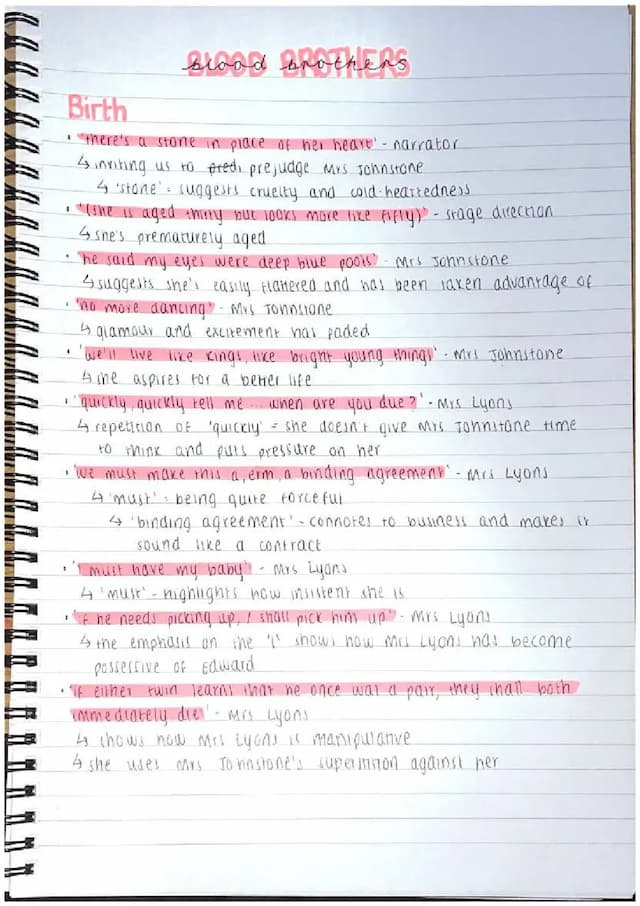 BLOOD BROTHERS
blood brothers
Birth
• 'there's a stone in place of her heart' - narrator
↳ inviting us to predj prejudge Mrs Johnstone
↳ 'stone' = suggests cruelty and cold-heartedness
• '(she is aged thirty but looks more like fifty)' - stage direction
↳ she's prematurely aged
• 'he said my eyes were deep blue pools' - Mrs Johnstone
↳ suggests she's easily flattered and has been taken advantage of
• 'no more dancing' - Mrs Johnstone
↳ glamour and excitement has faded
• 'we'll live like kings, like bright young things' - Mrs Johnstone
↳ she aspires for a better life
• 'quickly, quickly tell me... when are you due?' - Mrs Lyons
↳ repetition of 'quickly' = she doesn't give Mrs Johnstone time
to think and puts pressure on her
• 'we must make this a, erm, a binding agreement' - Mrs Lyons
↳ 'must' = being quite forceful
↳ 'binding agreement' - connotes to business and makes it
sound like a contract
• 'I must have my baby' - Mrs Lyons
↳ 'must' - highlights how insistent she is
• 'if he needs picking up, I shall pick him up' - Mrs Lyons
↳ the emphasis on the 'I' shows how Mrs Lyons has become
possessive of Edward
• 'if either twin learns that he once was a pair, they shall both
immediately die' - Mrs Lyons
↳ shows how Mrs Lyons is manipulative
↳ she uses Mrs Johnstone's superstition against her